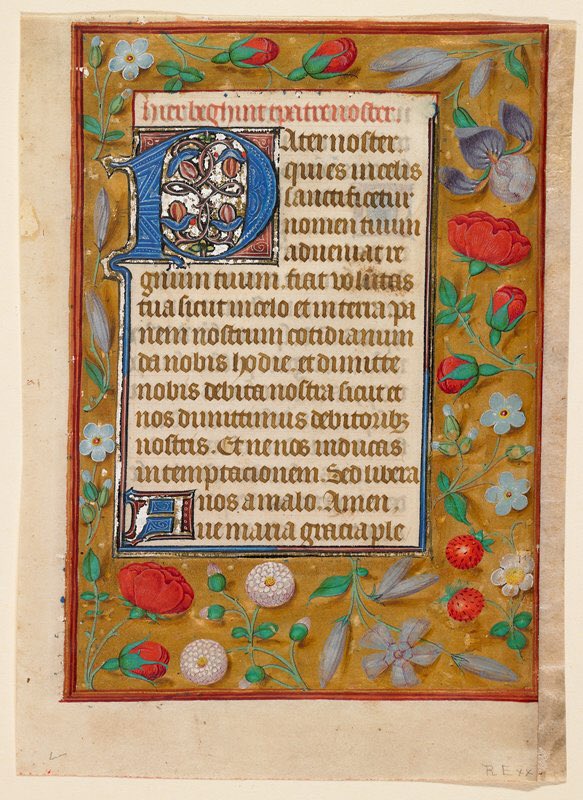 hier beghint tpatrenoster
Pater noster
qui es in celis
sanctificetur
nomen tuum
adueniat re
gnum tuum. fiat voluntas
tua sicut in celo et in terra pa
nem nostrum cotidianum
da nobis hodie. et dimitte
nobis debita nostra sicut et
nos dimittimus debitoribꝫ
nostris. Et ne nos inducas
in temptacionem. Sed libera
nos a malo. Amen
Aue maria gracia ple
R E xx